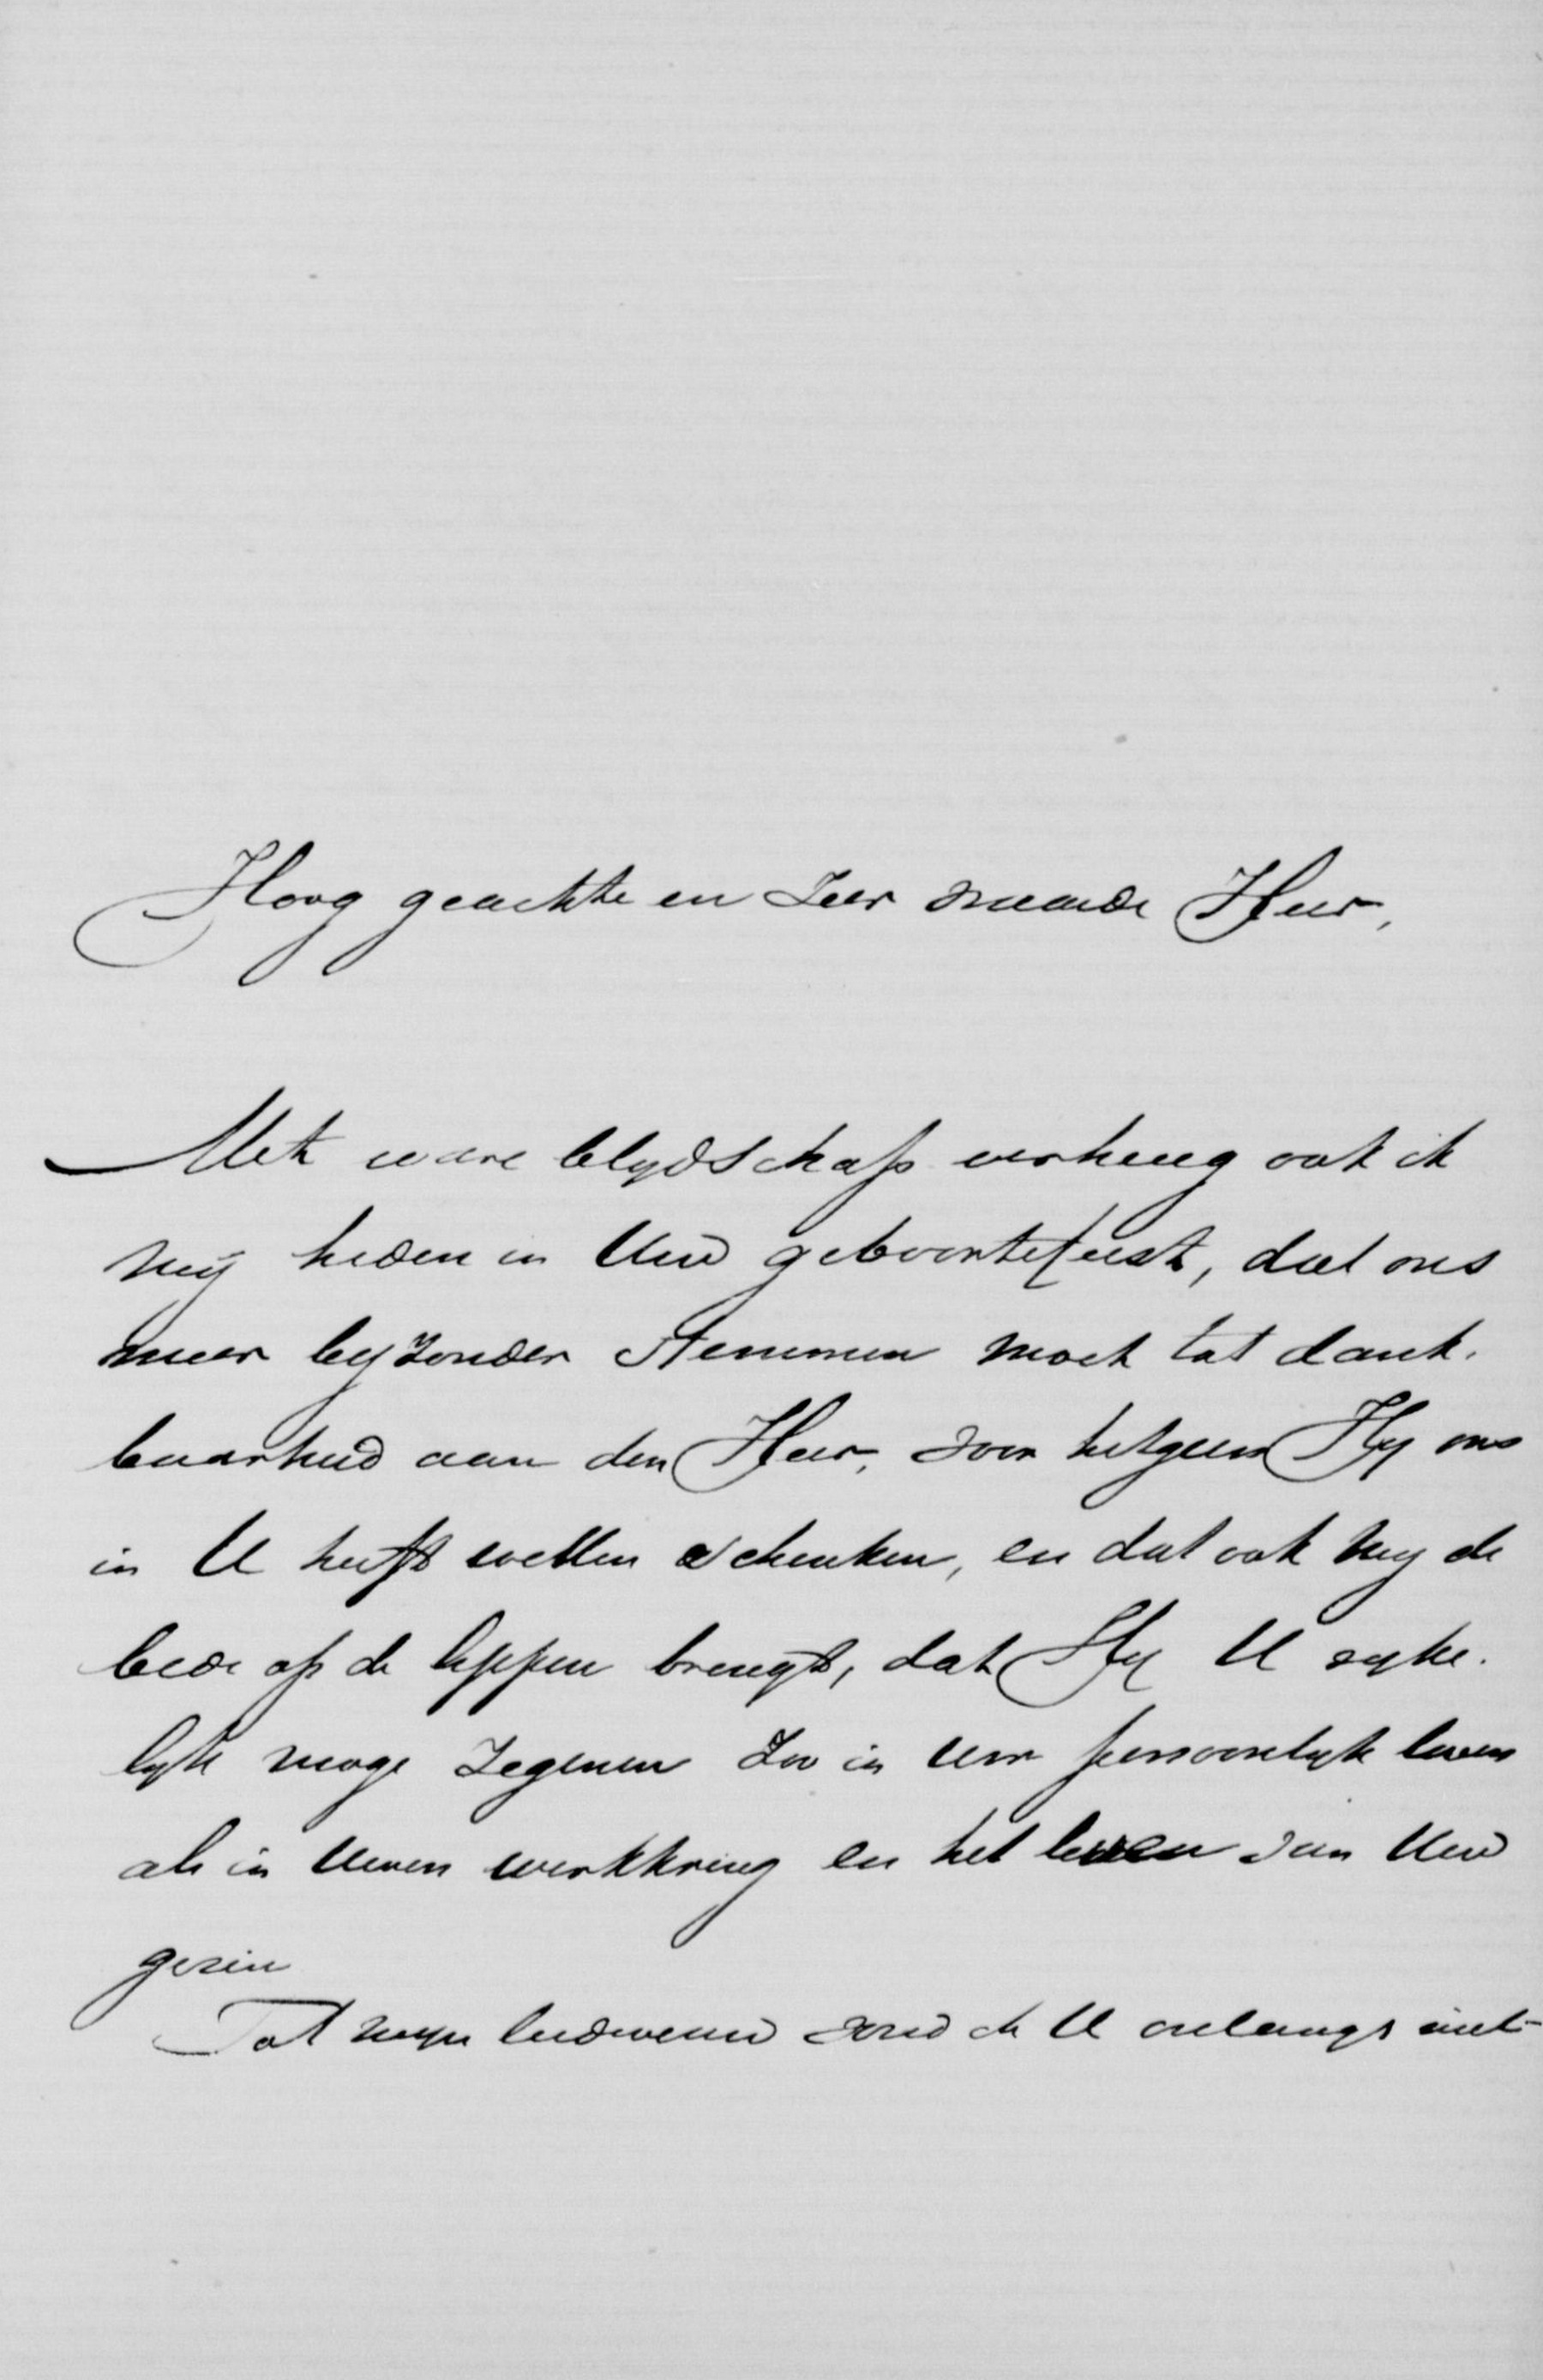 Hoog geachte en Zeer waarde Heer,
Met ware blydschap verheug ook ik
my heden in Uw geboortefeest, dat ons
meer byzonder stemmen moet tot dank-
baarheid aan den Heer, voor hetgeen Hy ons
in U heeft willen schenken, en dat ook my de
bede op de lippen brengt, dat Hy U ryke-
lyk moge zegenen zoo in Uw persoonlyk leven
als in Uwen werkkring en het leven van Uw
gezin
Tot myn leedwezen vond ik U onlangs niet